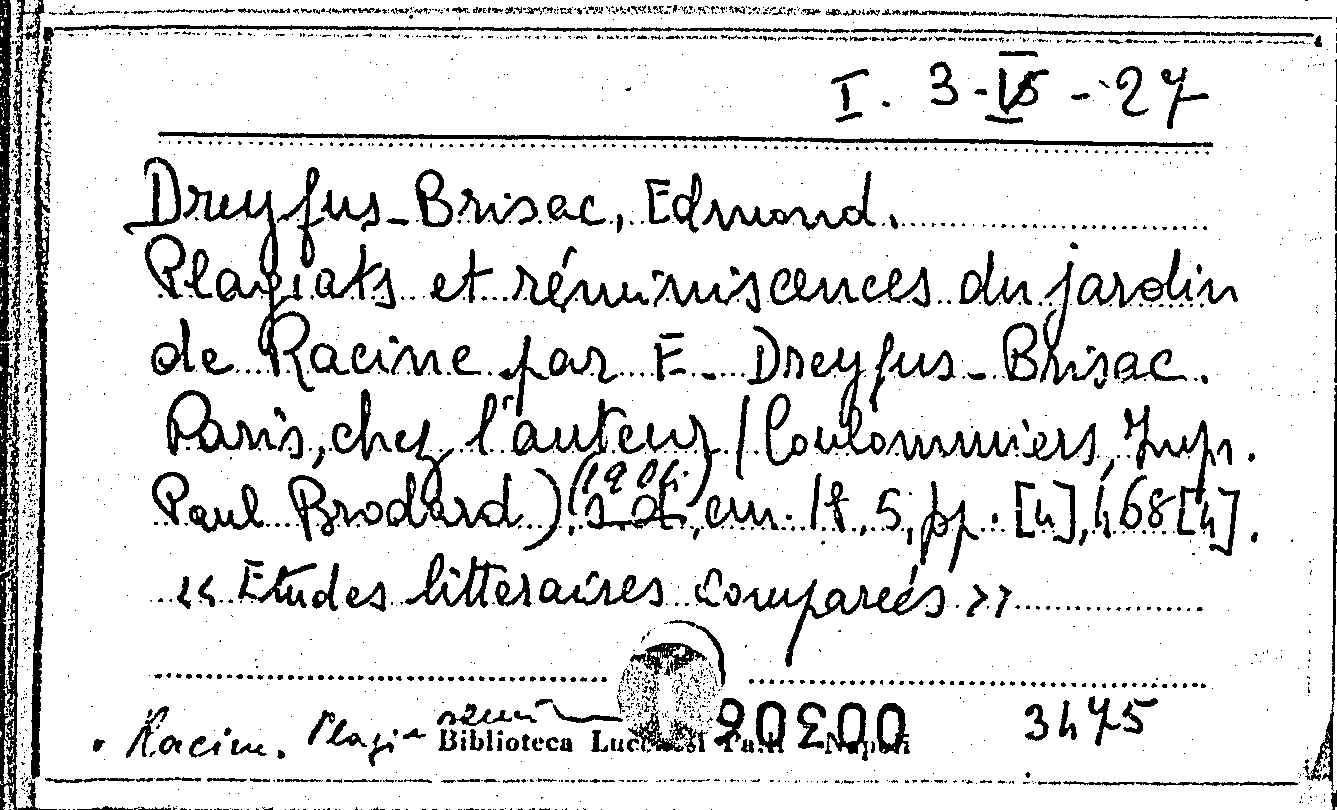 I. 3-IV-27
Dreyfus-Brisac, Edmond.
Plagiats et réminiscences du jardin
de Racine par E. Dreyfus-Brisac.
Paris, chez l'auteur (Coulommiers, Imp.
Paul Brodard), s.d., cm. 18,5, pp. [4], 168 [4].
« Etudes litteraires comparées »
Racine. Plagi-
Biblioteca Lucchesi Palli Napoli
3475